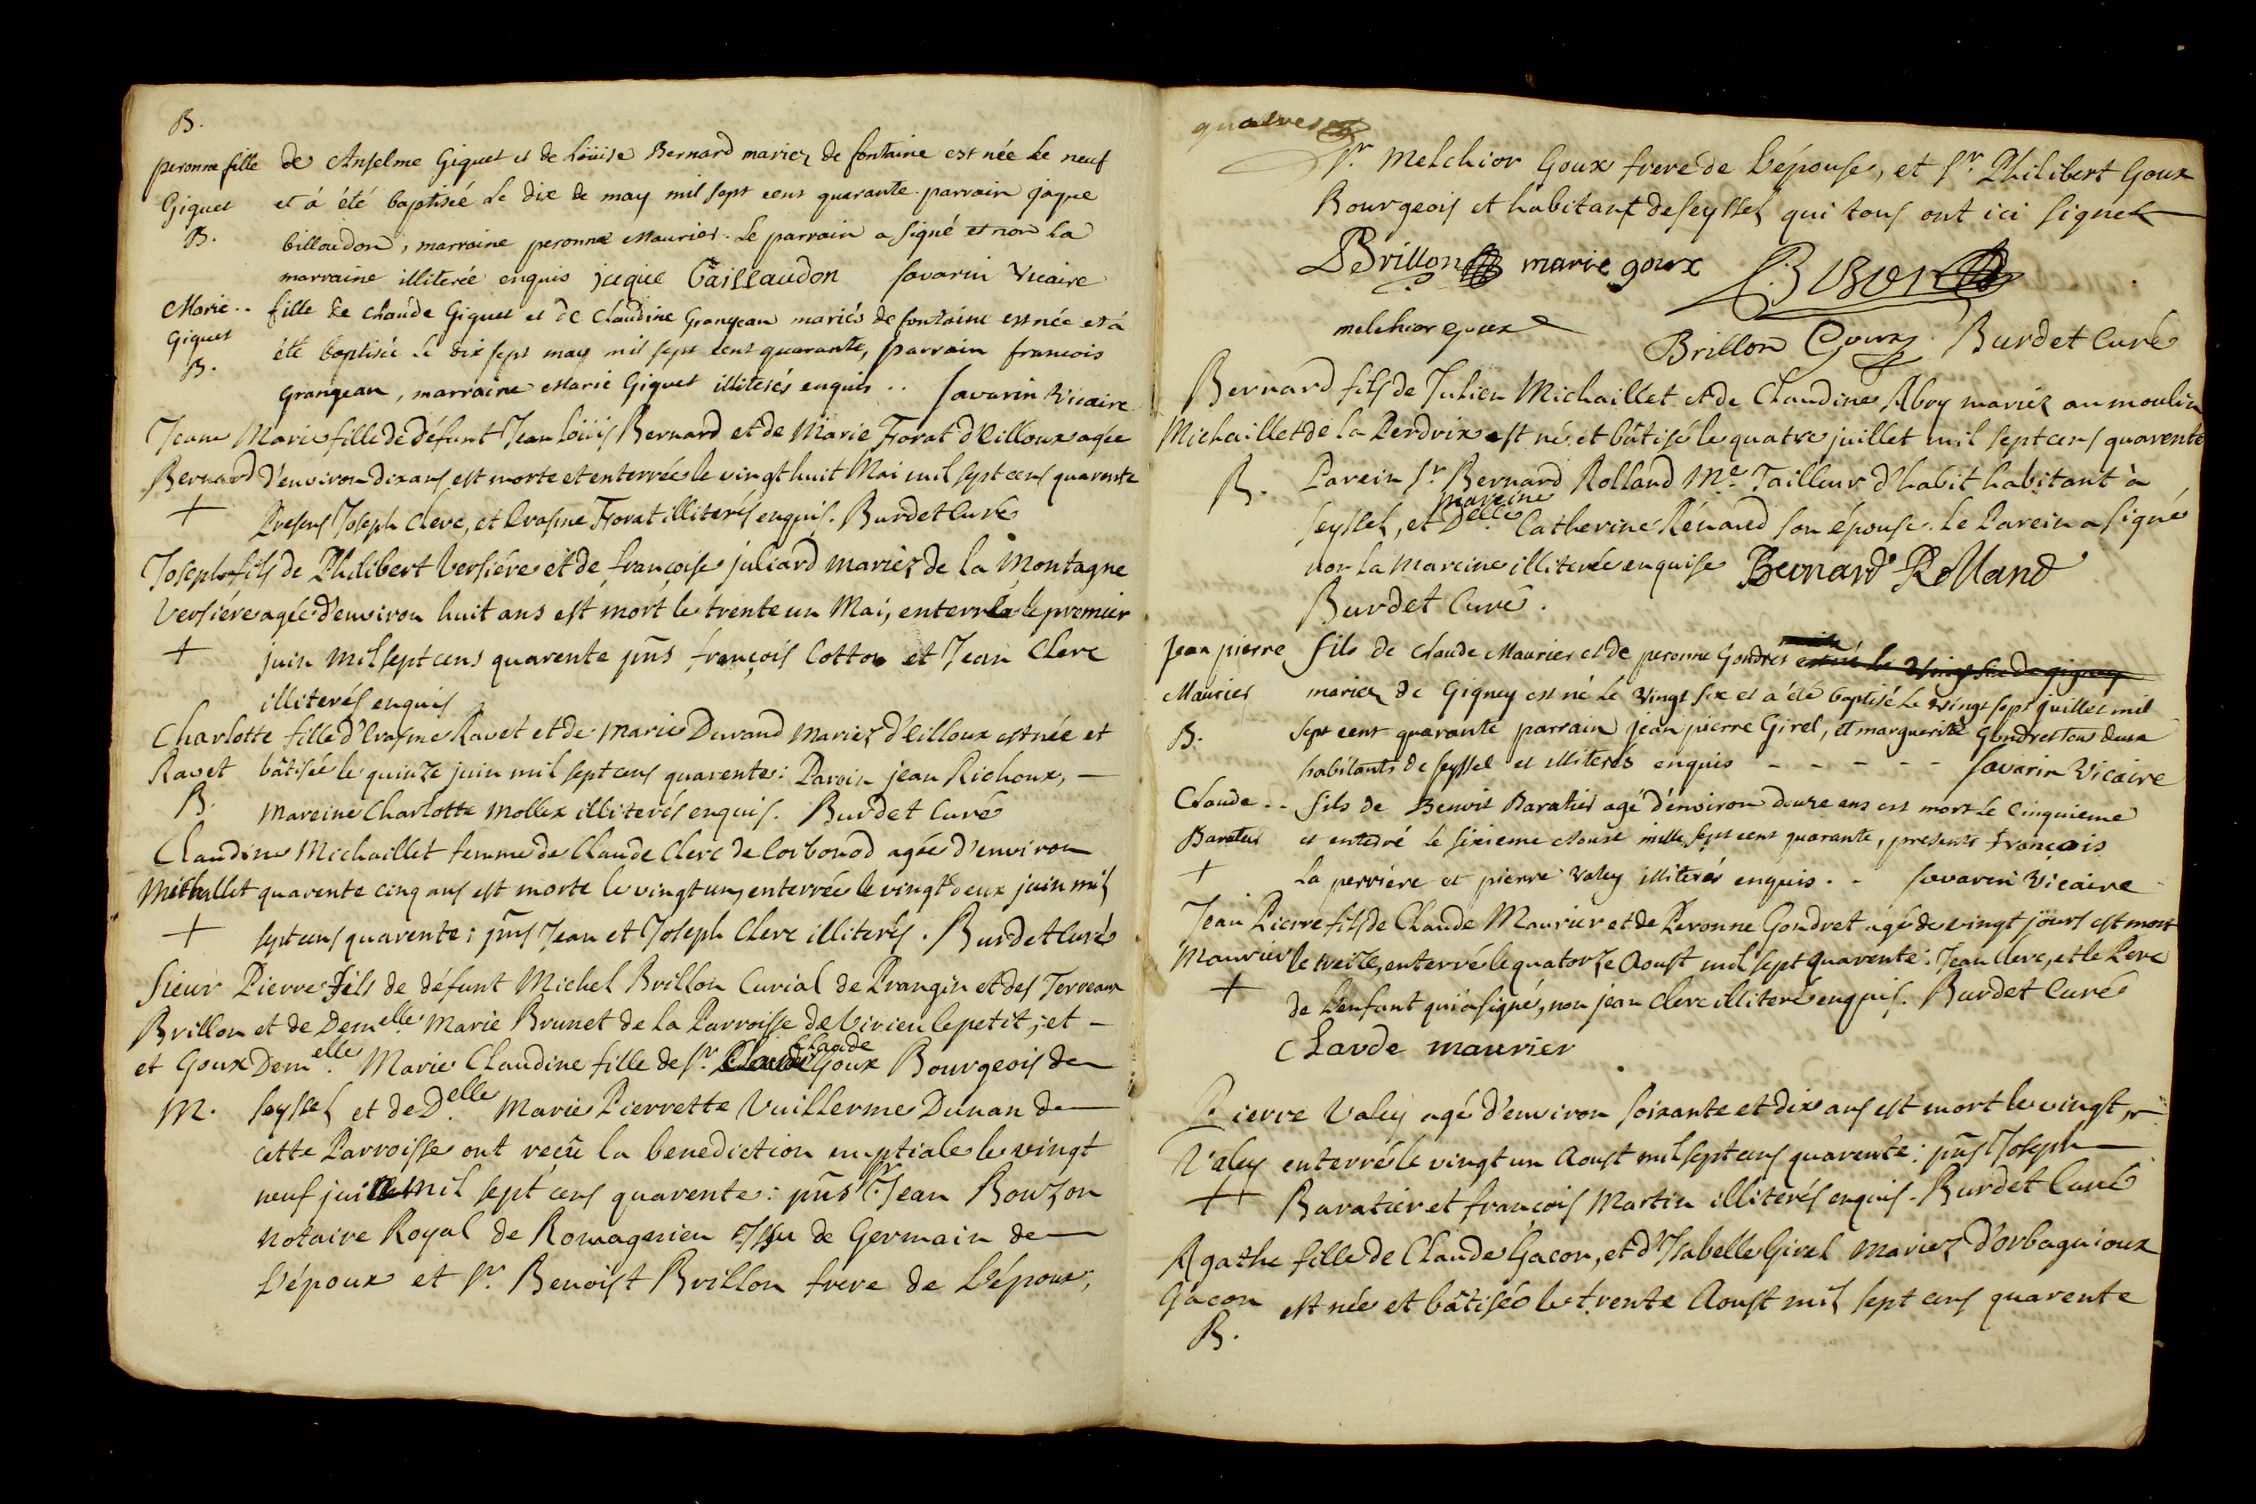 B.
peronne fille de Anselme Giguet et de Loüise Bernard mariez de fontaine est née le neuf
Giguet et à été baptisée le dix de may mil sept cent quarante parrain jaque
B. billoudon, marraine peronne Maurier. Le parrain a signé et non la
marraine illiterée enquis jaque Baillaudon Savarin Vicaire
Marie .. fille de claude Giguet et de Claudine Grangean mariés de fontaine est née et à
Giguet été baptisée le dix sept may mil sept cent quarante, parrain francois
B. Grangean, marraine Marie Giguet illiterés enquis .. Savarin Vicaire
Jeane Marie fille de défunt Jean Loüis Bernard et de Marie Forat d'Eilloux agée
Bernard d'environ dix ans est morte et enterrée le vingt huit Mai mil sept cens quarente
+ Presens Joseph Clerc, et Erasme Forat illiterés enquis. Burdet Curé
Joseph fils de Philibert Versiére et de françoise juliard mariez de la Montagne
Versiére agée d'environ huit ans est mort le trente un Mai, enterré le premier
+ juin mil sept cens quarente pñs françois Cotton et Jean Clerc
illiterés enquis
Charlotte fille d'Erasme Ravet et de Marie Durand Mariez d'Eilloux est née et
Ravet bâtisée le quinze juin mil sept cens quarente: Parein jean Richoux, —
B. Mareine Charlotte Mollex illiterés enquis. Burdet Curé
Claudine Michaillet femme de Claude Clerc de Corbonod agée d'environ
Michallet quarente cinq ans est morte le vingt un, enterrée le vingt deux juin mil
+ sept cens quarente; pñs Jean et Joseph Clerc illiterés. Burdet Curé
Sieur Pierre Fils de défunt Michel Brillon Curial de Prangin et des Terreaux
Brillon et de Demelle Marie Brunet de la Parroisse de Virieu le petit; et —
et Goux Demelle Marie Claudine fille de Sr. Claude Goux Bourgeois de
M. Seyssel et de Delle Marie Pierrette Vuillerme Dunan de —
cette Parroisse ont reçû la benediction nuptiale le vingt
neuf juin mil sept cens quarente: pñs Sr. Jean Bouzon
Notaire Royal de Romagnieu Issu de Germain de —
L'époux et Sr. Benoist Brillon frere de L'époux;
quatre
Sr. Melchior Goux frere de L'épouse, et Sr. Philibert Goux
Bourgeois et habitant de Seyssel qui tous ont ici signez
PBrillon marie goux
melchior goux Brillon Goux Burdet Curé
Bernard fils de Julien Michaillet et de Claudine Abry mariez au moulin
Michaillet de la Perdrix est né et bâtisé le quatre juillet mil sept cens quarente
B. Parein Sr. Bernard Rolland Me. Tailleur d'habit habitant à
Seyssel, et Mareine Delle Catherine Rénaud son épouse. Le Parein a signé
non la Mareine illiterée enquise Bernard Rolland
Burdet Curé.
Jean pierre fils de claude Maurier et de peronne Gondret
Maurier mariez de Gigney est né le vingt six et a été baptisé le vingt sept juillet mil
B. sept cent quarante parrain jean pierre Girel, et marguerite Gondret tous deux
habitants de seyssel et illiterés enquis - - - - - Savarin Vicaire
Claude .. fils de Benoit Baratier agé d'environ douze ans est mort le cinquieme
Baratier et enterré le sixieme Aoust mille sept cent quarante, presents François
+ La perriére et pierre Valey illiterés enquis .. Savarin Vicaire
Jean Pierre fils de Claude Maurier et de Peronne Gondret agé de vingt jours est mort
Maurier le treize, enterré le quatorze Aoust mil sept quarente: Jean Clerc, et le Pere
+ de L'enfant qui a signé, non jean Clerc illiteré enquis. Burdet Curé
Claude maurier
Pierre Valey agé d'environ soixante et dix ans est mort le vingt,
Valey enterré le vingt un Aoust mil sept cens quarente: pñs Joseph —
+ Baratier et françois Martin illiterés enquis. Burdet Curé
Agathe fille de Claude Gacon, et d'Isabelle Girel Mariez d'orbagnioux
Gacon est née et bâtisée le trente Aoust mil sept cens quarente
B.